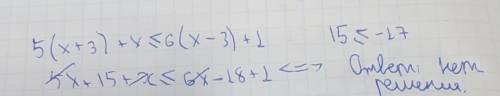 5(x+3)+x≤6(x-3)+1
15≤-17
5x+15+x≤6x-18+1 <=>
Ответ: нет
решения.